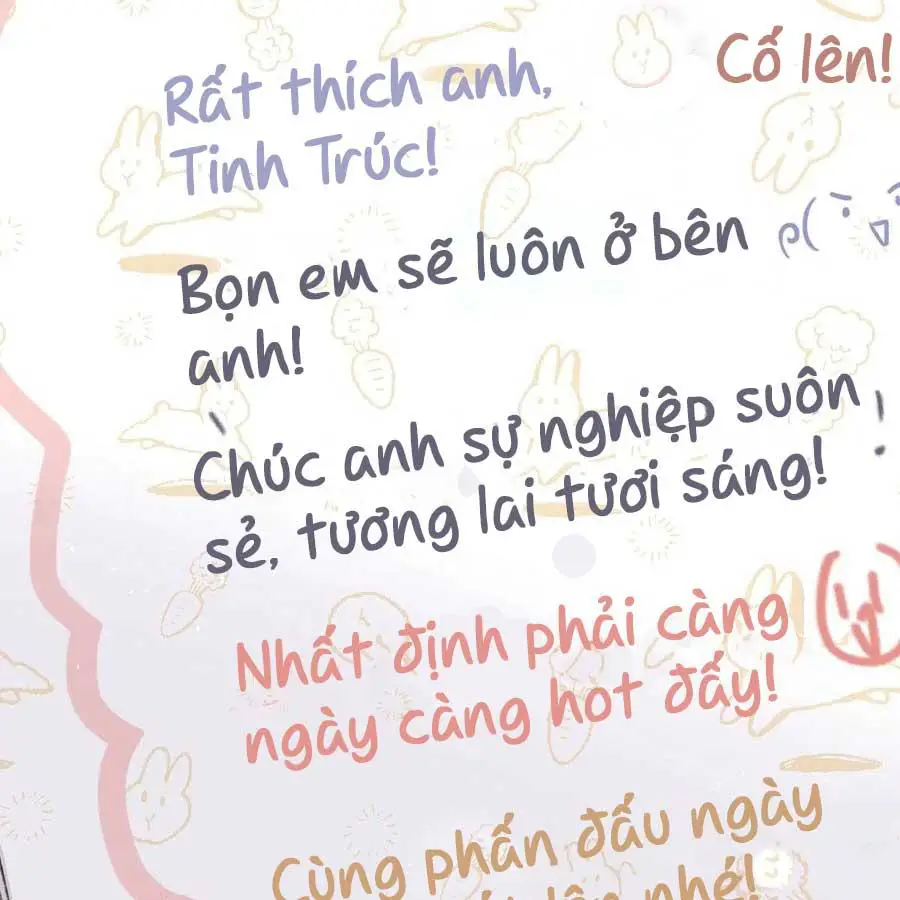 Cố lên!
Rất thích anh,
Tinh Trúc!
Bọn em sẽ luôn ở bên
anh!
Chúc anh sự nghiệp suôn
sẻ, tương lai tươi sáng!
Nhất định phải càng
ngày càng hot đấy!
Cùng phấn đấu ngày
lên nhé!